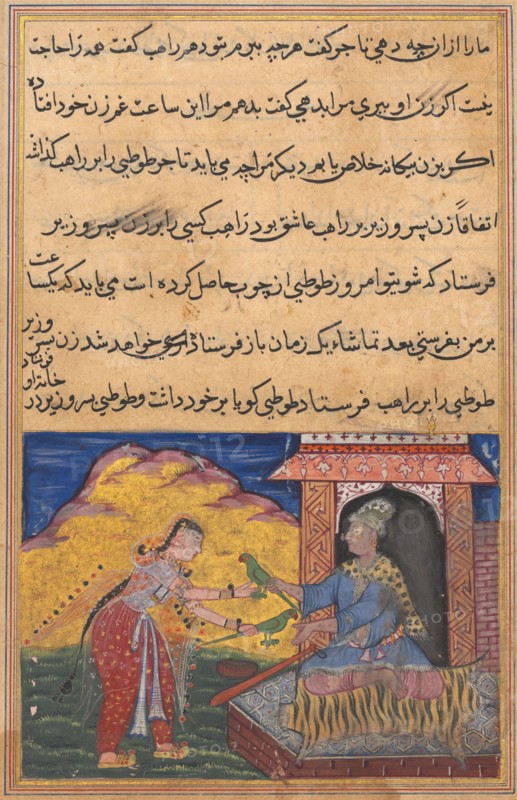 مارا ازان چه دهی تاجر گفت هرچه ببرم بتو دهم راهب گفت همه را حاجت
نیست اگر زن او بیری مرا بدهی گفت بدهم مرا این ساعت غم زن خود افتاده
اگر بزن بیکانه خلاص یابم دیگر مرا چه می باید تاجر طوطی را بر راهب گذاشت
اتفاقاً زن پسر وزیر بر راهب عاشق بود راهب کسی را بر زن پسر وزیر
فرستاد که شوی تو امروز طوطی از چوب حاصل کرده است می باید که یکساعت
بر من بفرستی بعد تماشاء یک زمان باز فرستاده خواهد شد زن پسر وزیر
طوطی را بر راهب فرستاد طوطی کویا بر خود داشت و طوطی پسر وزیر در
خانه او
فرستاد
PHOTO12